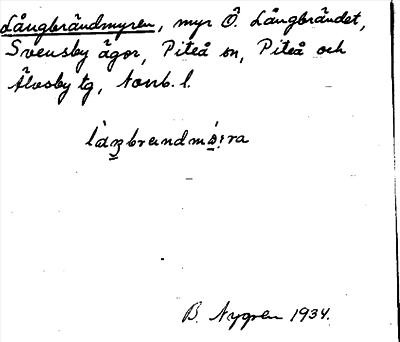 Långbrändmyren, myr Ö. Långbrändet,
Svensby ägor, Piteå sn, Piteå och
Älvsby tg, Norrb. l.
B. Nygren 1934.